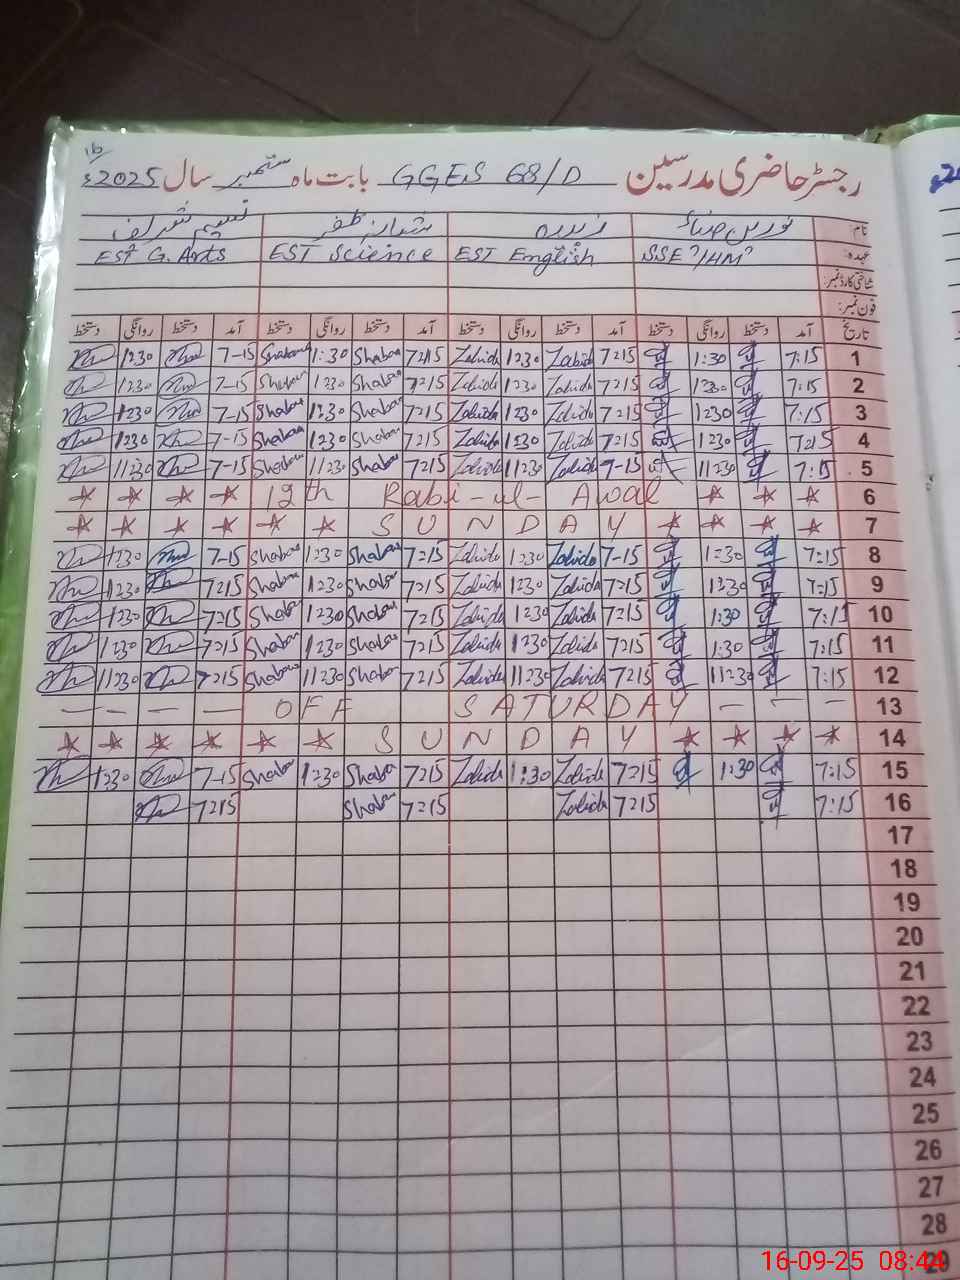 16
رجسٹر حاضری مدرسین GGES 68/D بابت ماہ ستمبر سال 2025ء
نام: زبیدہ شبانہ ظفر نسیم شریف
عہدہ: SSE/HM EST English EST Science EST G. Arts
شناختی کارڈ نمبر:
فون نمبر:
تاریخ آمد دستخط روانگی دستخط آمد دستخط روانگی دستخط آمد دستخط روانگی دستخط آمد دستخط روانگی دستخط
1 7:15 1:30 7:15 Zabida 1:30 Zabida 7:15 Shabana 1:30 Shabana 7-15 1:30
2 7:15 1:30 7:15 Zabida 1:30 Zabida 7:15 Shabana 1:30 Shabana 7-15 1:30
3 7:15 1:30 7:15 Zabida 1:30 Zabida 7:15 Shabana 1:30 Shabana 7-15 1:30
4 7:15 1:30 7:15 Zabida 1:30 Zabida 7:15 Shabana 1:30 Shabana 7-15 1:30
5 7:15 11:30 7-15 Zabida 11:30 Zabida 7:15 Shabana 11:30 Shabana 7-15 11:30
6 12th Rabi-ul-Awal
7 SUNDAY
8 7:15 1:30 7-15 Zabida 1:30 Zabida 7:15 Shabana 1:30 Shabana 7-15 1:30
9 7:15 1:30 7:15 Zabida 1:30 Zabida 7:15 Shabana 1:30 Shabana 7:15 1:30
10 7:15 1:30 7:15 Zabida 1:30 Zabida 7:15 Shabana 1:30 Shabana 7:15 1:30
11 7:15 1:30 7:15 Zabida 1:30 Zabida 7:15 Shabana 1:30 Shabana 7:15 1:30
12 7:15 11:30 7:15 Zabida 11:30 Zabida 7:15 Shabana 11:30 Shabana 7:15 11:30
13 OFF SATURDAY
14 SUNDAY
15 7:15 1:30 7:15 Zabida 1:30 Zabida 7:15 Shabana 1:30 Shabana 7-15 1:30
16 7:15 7:15 Zabida 7:15 Shabana 7:15
17
18
19
20
21
22
23
24
25
26
27
28
29
16-09-25 08:44